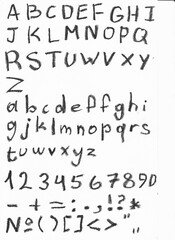 ABCDEFGHI
JKLMNOPQ
RSTUWVXY
Z
abcdeffghi
gjklmnopqrs
tuwvxyz
1234567890
- + = : . , ! ? *
№ ( ) [ ] < > " „